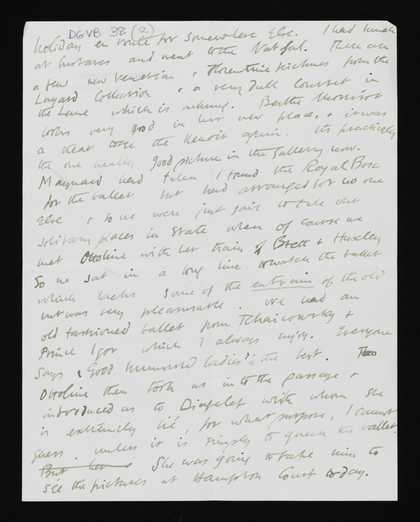 DGVB 38 (2)
holiday en route for somewhere else. I had lunch
at and went to the Nat Gal. There are
a few new Venetian & Florentine pictures from the
Layard Collection & a very dull Courbet in
the home which is Berthe Morisot
looks very good in her new place, & it was
a treat to see the Renoir again. Its practically
the one really good picture in the gallery now.
Maynard had taken I found the Royal Box
for the ballet but had arranged for no one
else & so we were just going to take our
solitary places in state when of course we
met Ottoline with her train of Brett & Huxley
So we sat in a long line & watched the ballet
which lacks some of the entrain of the old
but was very pleasurable. We had an
old fashioned ballet from Tchaicowsky &
Prince Igor which I always enjoy. Everyone
says 'Good humoured ladies' is the best.
Ottoline then took us into the passage &
introduced us to Diagilef with whom she
is extremely lié, for what purpose, I cannot
guess, unless it is simply to the ballet.
But her She was going to take him to
see the pictures at Hampton Court to-day.